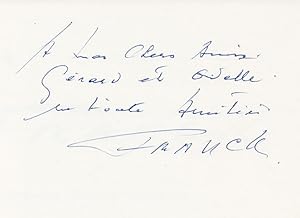 A mes Chers Amis
Gérard et Odette
en toute Amitié
FRANCK